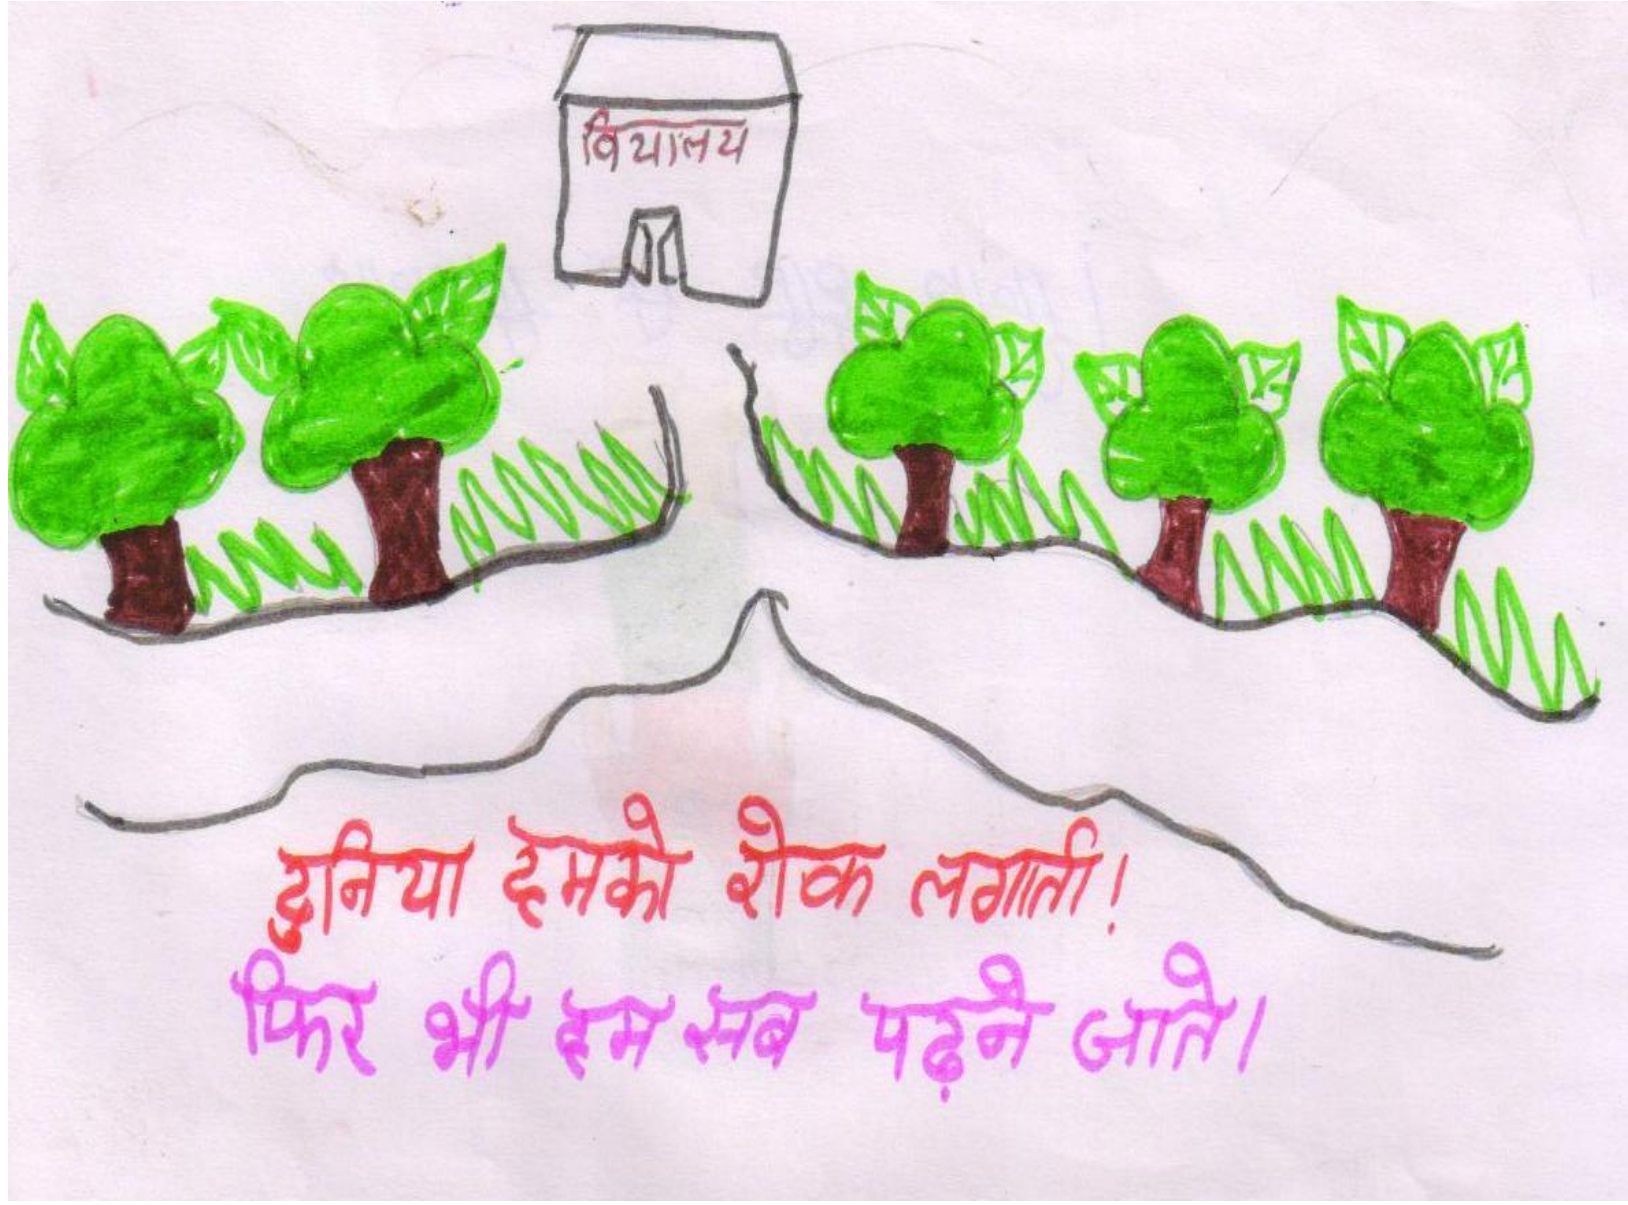 विद्यालय
दुनिया हमको रोक लगाती!
फिर भी हम सब पढ़ने जाते।